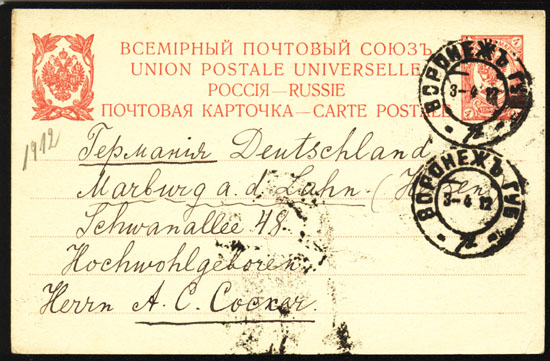 ВСЕМІРНЫЙ ПОЧТОВЫЙ СОЮЗЪ.
UNION POSTALE UNIVERSELLE
РОССІЯ—RUSSIE
ПОЧТОВАЯ КАРТОЧКА—CARTE POSTALE
ВОРОНЕЖЪ ГУБ
3-4 12
ВОРОНЕЖЪ ГУБ
3-4 12
1912
Германія Deutschland
Marburg a. d. Lahn (Hessen
Schwanallee 48.
Hochwohlgeboren
Herrn A. C.